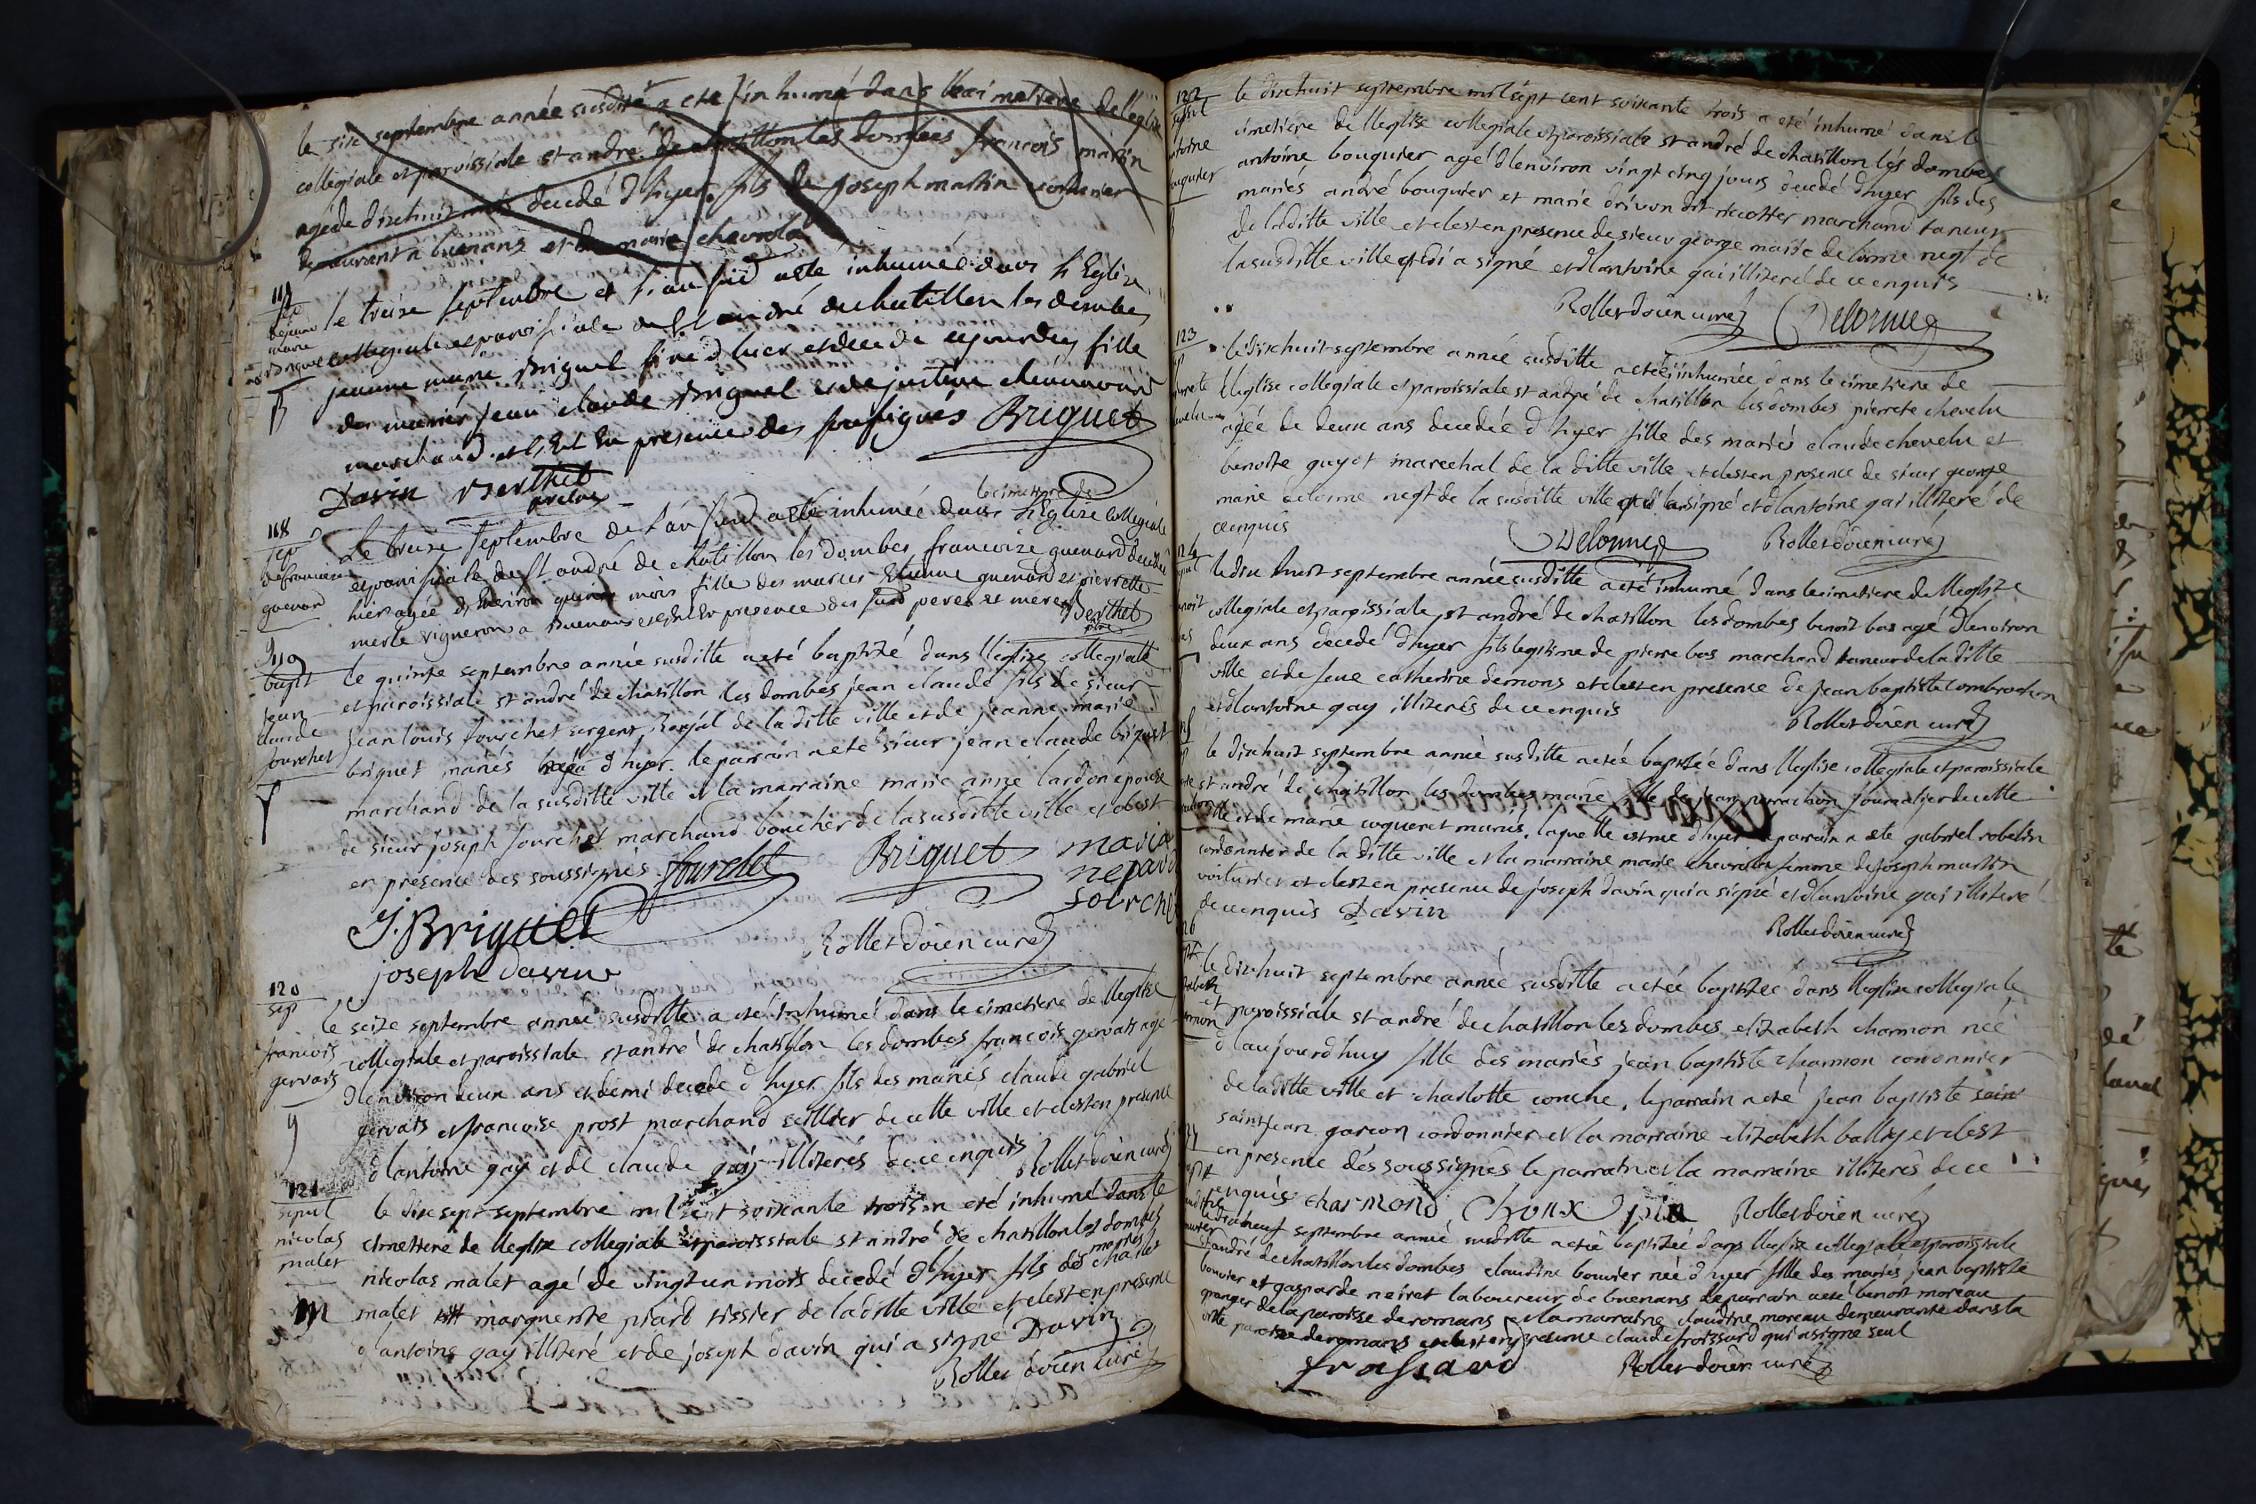 le six septembre année susdite a ete inhumé dans le cimetiere de leglise
collegiale et paroissiale st andré de chatillon les dombes francois martin
agé de dixhuit mois decedé d'hyer fils de joseph martin
demeurant a buenans et de marie chevrola
le treize septembre et l'an susd a ete inhumée dans l'Eglise
collegiale et paroissiale de st andré de chatillon les dombes
jeanne marie Briguet decede ejourduy fille
des mariés jean claude Briguet et de justine
marchand et c'Est En presence des soussignés Briguet
Davin Berthet
le cimetiere de
118
sep
Le treize septembre de l'an susd a ete inhumée dans l'Eglise collegiale
et paroissiale de st andré de chatillon les dombes francoize guenard decedée
guenard
hier agée d'Environ quinze mois fille des mariés Etienne guenard et pierrette
merle vigneron a Buenans et c'Est En presence des susd peres et meres Berthet
119
bapt
jean
claude
fourchet
le quinze septembre année susditte a eté baptizé dans lleglize collegiale
et paroissiale st andré de chatillon les dombes jean claude fils de sieur
jean louis fourchet sergent royal de la ditte ville et de jeanne marie
briguet mariés d'hyer. le parrain a eté sieur jean claude briguet
marchand de la susditte ville et la marraine marie anne lardon epouse
de sieur joseph fourchet marchand boucher de la susditte ville et c'lest
en presence des soussignés fourchet Briguet maria
J. Briguet
joseph davin
Rollet doïen curé
120
sep
francois
gervais
le seize septembre année susditte a eté inhumé dans le cimetiere de lleglize
collegiale et paroissiale st andré de chatillon les dombes francois gervais agé
d'lenviron deux ans et demi decedé d'hyer fils des mariés claude gabriel
gervais et francoise prost marchand sellier de cette ville et c'lest en presence
d'lantoine gay et de claude gay illiterés de ce enquis Rollet doïen curé
121
sepul
nicolas
malet
le dixsept septembre mil sept cent soixante trois a eté inhumé dans le
cimettiere de lleglize collegiale et paroissiale st andré de chatillon les dombes
nicolas malet agé de vingt un mois decedé d'hyer fils des mariés charles
malet et marguerite piard tissier de la ditte ville et c'lest en presence
d'lantoine gay illiteré et de joseph davin qui a signé Davin
Rollet doïen curé
122
le dixhuit septembre mil sept cent soixante trois a eté inhumé dans le
cimetiere de lleglise collegiale et paroissiale st andré de chatillon les dombes
antoine bouquier agé d'lenviron vingt cinq jours decedé d'hyer fils des
mariés andré bouquier et marie drivon dit ricottier marchand taneur
de la ditte ville et c'lest en presence de sieur george marie delorme negt de
la susditte ville qui a signé et d'lantoine gai illiteré de ce enquis
Rollet doïen curé Delorme
123
le dixhuit septembre année susditte a eté inhumée dans le cimetiere de
lleglise collegiale et paroissiale st andré de chatillon les dombes pierrete chevelu
agée de deux ans decedée d'hyer fille des mariés claude chevelu et
benoite guyot marechal de la ditte ville et c'lest en presence de sieur george
marie delorme negt de la susditte ville qui a signé et d'lantoine gai illiteré de
ce enquis Delorme Rollet doïen curé
le dix huit septembre année susditte a eté inhumé dans le cimetiere de lleglize
collegiale et paroissiale st andré de chatillon les dombes benoit bas agé d'lenviron
deux ans decedé d'hyer fils legitime de pierre bas marchand taneur de la ditte
ville et de feue catherine demons et c'lest en presence de jean baptiste combrochon
et d'lantoine gay illiterés de ce enquis Rollet doïen curé
le dixhuit septembre année susditte a eté baptizée dans lleglise collegiale et paroissiale
st andré de chatillon les dombes marie fille de jean journalier de cette
ville et de marie coqueret mariés, laquelle est née d'hyer le parrain a ete gabriel robelin
cordonnier de la ditte ville et la marraine marie chevrola femme de joseph martin
voiturier et c'lest en presence de joseph davin qui a signé et d'lantoine gai illiteré
de ce enquis Davin
Rollet doïen curé
le dixhuit septembre année susditte a eté baptizée dans lleglize collegiale
et paroissiale st andré de chatillon les dombes elizabeth charmon née
d'laujourd'huy fille des mariés jean baptiste charmon cordonnier
de la ditte ville et charlotte conche. le parrain a eté jean baptiste sain
saintjean garcon cordonnier et la marraine elizabeth ballay et c'lest
en presence des soussignés le parrain et la marraine illiterés de ce
enquis charmond Rollet doïen curé
le dixneuf septembre année susditte a eté baptizée dans lleglise collegiale et paroissiale
st andré de chatillon les dombes claudine bouvier née d'hyer fille des mariés jean baptiste
bouvier et gasparde neiret laboureur de buenans le parrain a eté benoit moreau
granger de la paroisse de romans et la marraine claudine moreau demeurante dans la
ditte paroisse de romans et c'lest en presence claude froissard qui a signé seul
frossard Rollet doïen curé